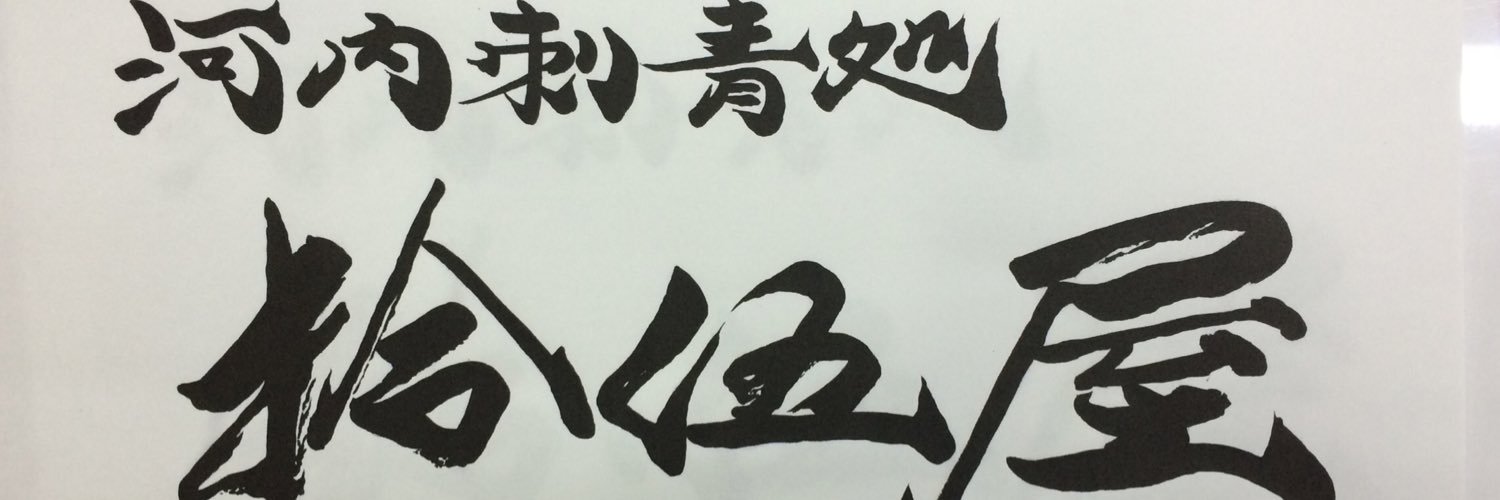 河内刺青処
拾伍屋